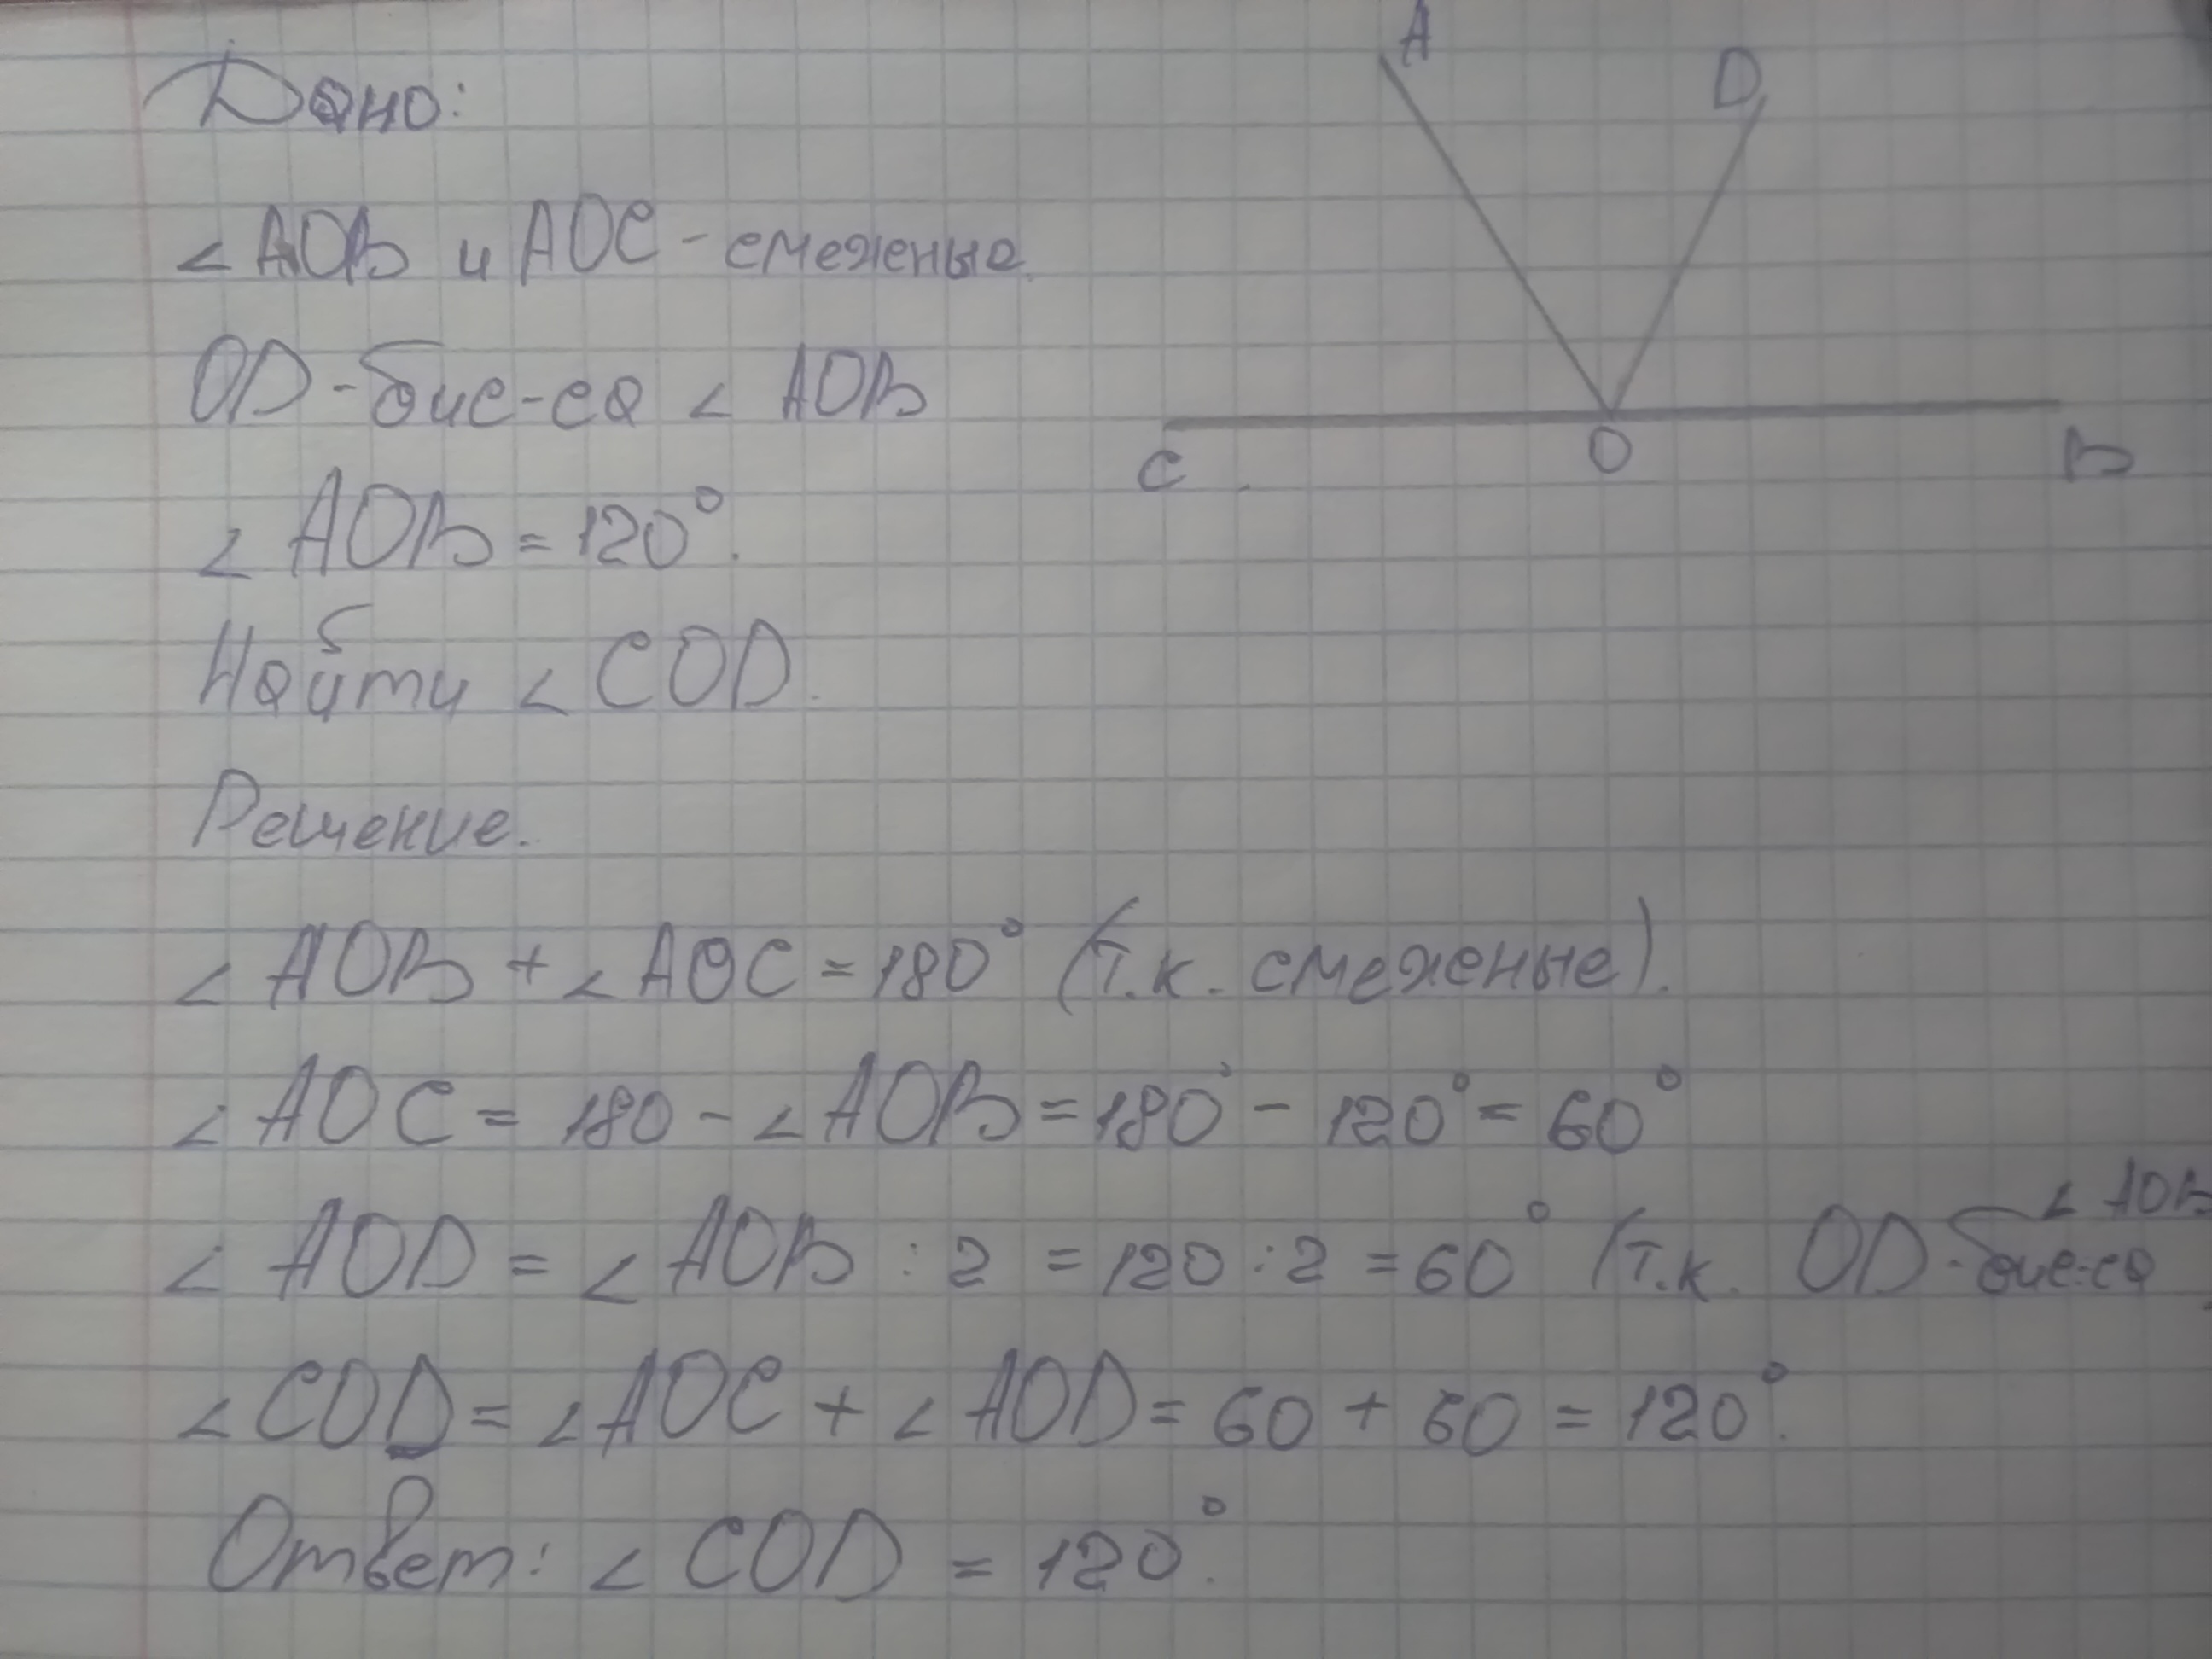 Дано:
A
D
∠ AOB и AOC - смеженые.
OD - бис-са ∠ AOB
C
O
B
∠ AOB = 120°.
Найти ∠ COD.
Решение.
∠ AOB + ∠ AOC = 180° (т.к. смеженые).
∠ AOC = 180 - ∠ AOB = 180° - 120° = 60°
∠ AOD = ∠ AOB : 2 = 120 : 2 = 60° (т.к. OD - бис-са ∠ AOB
∠ COD = ∠ AOC + ∠ AOD = 60 + 60 = 120°.
Ответ: ∠ COD = 120°.